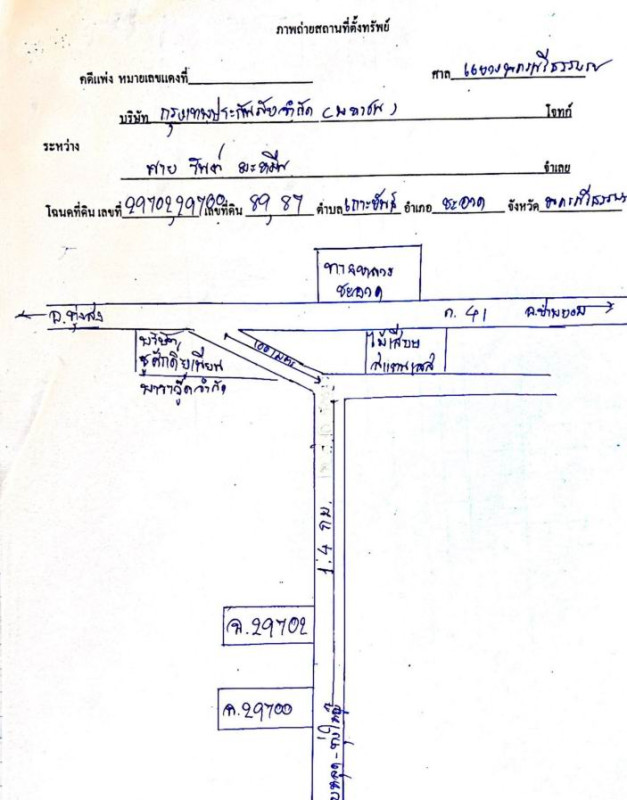 ภาพถ่ายสถานที่ตั้งทรัพย์
คดีแพ่ง หมายเลขแดงที่ ศาล แขวงนครศรีธรรมราช
บริษัท กรุงเทพประกันภัยจำกัด (มหาชน) โจทก์
ระหว่าง
นาย จำเลย
โฉนดที่ดิน เลขที่ 29702,29700 เลขที่ดิน 89,87 ตำบล เกาะขันธ์ อำเภอ ชะอวด จังหวัด นครศรีธรรมราช
ทางหลวง
ชะอวด
อ.ทุ่งสง ถ. 41 อ.ร่อนพิบูลย์
บริษัท
พาราวู๊ดจำกัด
ไม้เสียบ
สแตนเลส
1.4 กม.
ฉ.29702
ฉ.29700